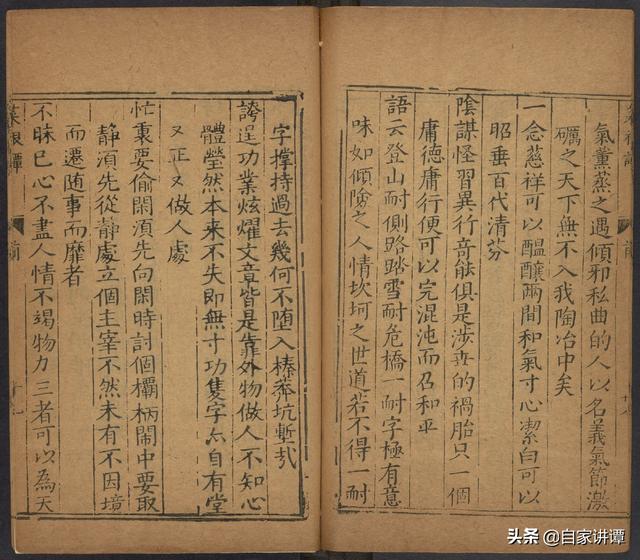 氣薰蒸之遇傾邪私曲的人以名義氣節激
礪之天下無不入我陶冶中矣
一念慈祥可以醞釀兩間和氣寸心潔白可以
昭垂百代清芬
陰謀怪習異行奇能俱是涉世的禍胎只一個
庸德庸行便可以完混沌而召和平
語云登山耐側路踏雪耐危橋一耐字極有意
味如傾險之人情坎坷之世道若不得一耐
字撐持過去幾何不墮入榛莽坑塹哉
誇逞功業炫燿文章皆是靠外物做人不知心
體瑩然本來不失即無寸功隻字亦自有堂
又正又做人處
忙裏要偷閑須先向閑時討個欛柄鬧中要取
靜須先從靜處立個主宰不然未有不因境
而遷随事而靡者
不昧已心不盡人情不竭物力三者可以為天
菜根譚
前
十七
头条 @自家讲谭